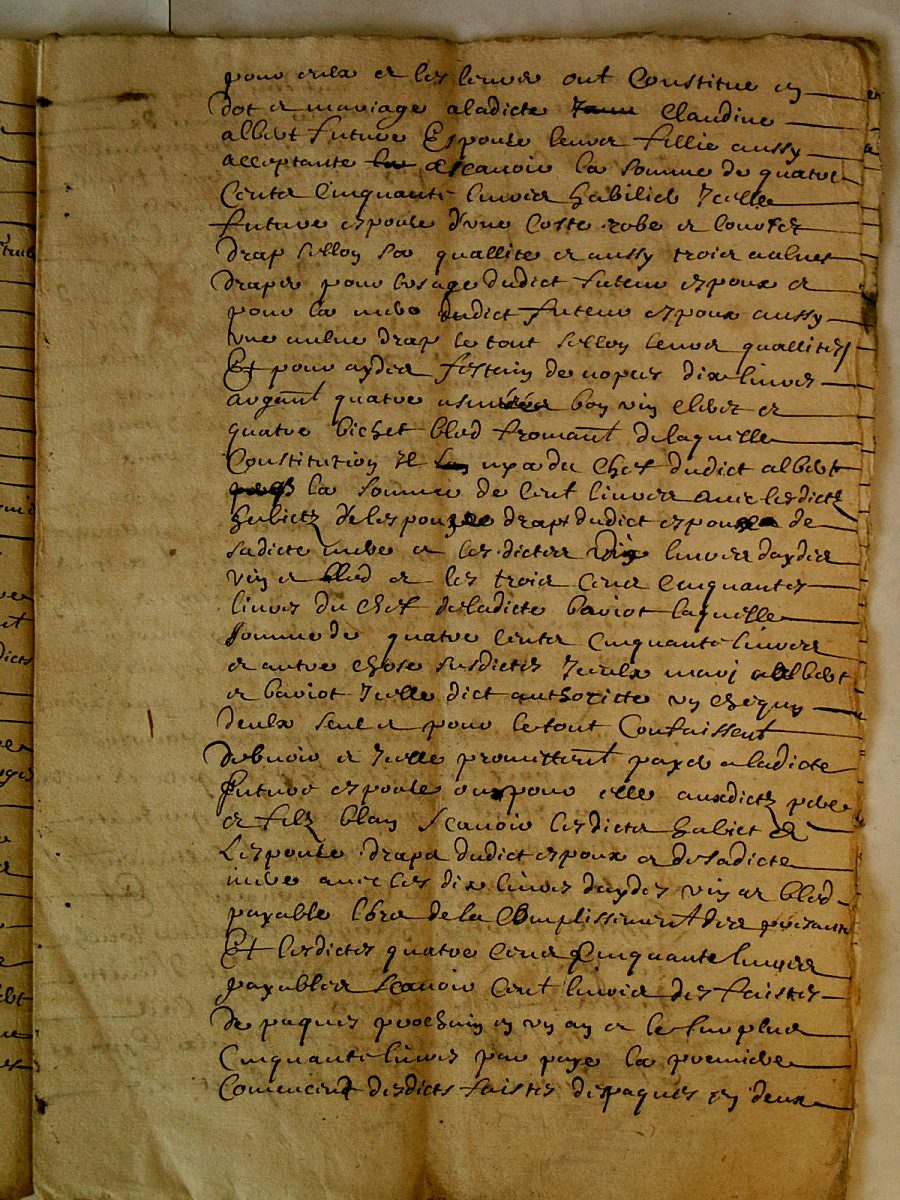 pour eulx et les leurs ont Constitue en
dot et mariage a ladicte Claudine
albert future Espouse leur fillie aussy
acceptante ascavoir la somme de quatre
Centz Cinquante livres habilier Icelle
future espouse d'une Cotte robe et
drap sellon sa quallite et aussy trois aulnes
drapt pour l'usage dudict futeur espoux et
pour la mere dudict futeur espoux aussy
une aulne drap le tout sellon leurs quallites
Et pour ayder festain de nopces dix livres
argent quatre bon vin et
quatre bichet bled fromant de laquelle
Constitution Il n'y a du Chef dudict albert
la somme de Cent livres avec lesdictz
habietz de l'espouze drapt dudict espoux de
sadicte mere et lesdictes dix livres d'aydes
vin et bled et les trois Cens Cinquantes
livres du Chef de ladicte baviot laquelle
somme de quatre Centz Cinquante livres
et autre chose susdictes Iceulx mari albert
et baviot Icelle dict authorizee un chequn
deulx seul et pour le tout Confaissent
debvoir et Icelle promettent payer a ladicte
future espouse ou pour elle auxdictz pere
et filz blan scavoir lesdictz habiet de
L'espouse drapt dudict espoux et de sadicte
mere avec les dix livres d'aydes vin et bled
payable lhors de la Complissement des presante
Et lesdictes quatre Cens Cinquante livres
payables scavoir Cent livres des faistes
de paques prochain en un an et le surplus
Cinquante livres par paye la premiere
Comencent desdicts faistes de paques en deux